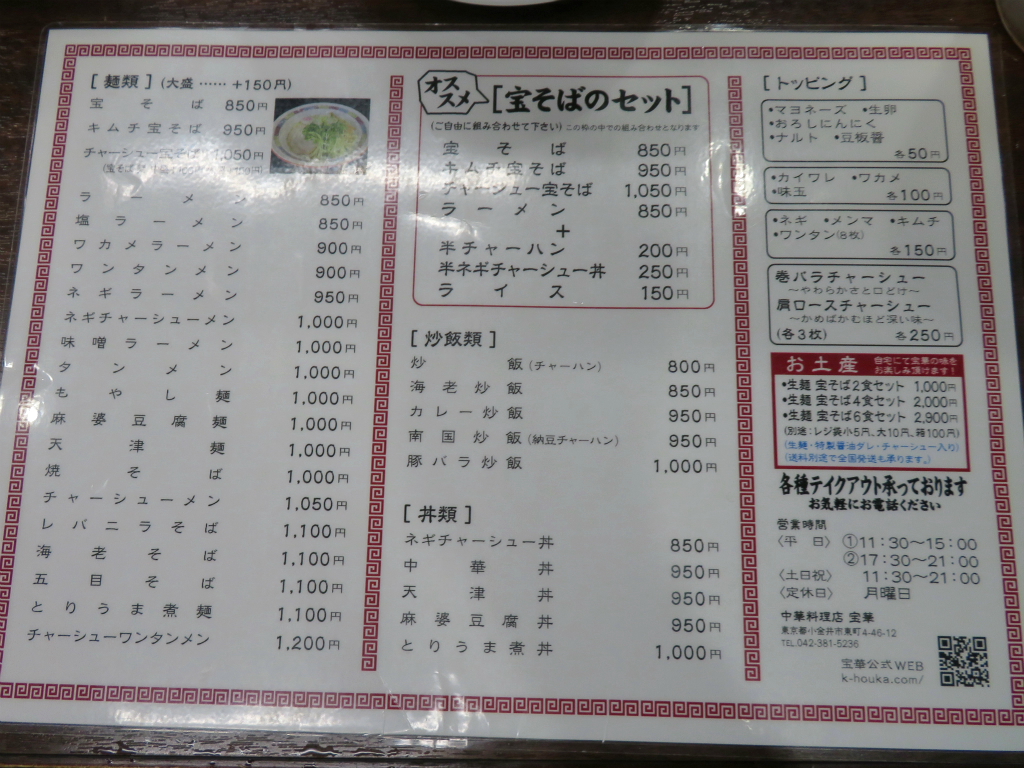 [麺類](大盛……+150円)
宝そば 850円
キムチ宝そば 950円
チャーシュー宝そば 1,050円
ラーメン 850円
塩ラーメン 850円
ワカメラーメン 900円
ワンタンメン 900円
ネギラーメン 950円
ネギチャーシューメン 1,000円
味噌ラーメン 1,000円
タンメン 1,000円
もやし麺 1,000円
麻婆豆腐麺 1,000円
天津麺 1,000円
焼そば 1,000円
チャーシューメン 1,050円
レバニラそば 1,100円
海老そば 1,100円
五目そば 1,100円
とりうま煮麺 1,100円
チャーシューワンタンメン 1,200円
オススメ
[宝そばのセット]
(ご自由に組み合わせて下さい)この枠の中での組み合わせとなります
宝そば 850円
キムチ宝そば 950円
チャーシュー宝そば 1,050円
ラーメン 850円
+
半チャーハン 200円
半ネギチャーシュー丼 250円
ライス 150円
[炒飯類]
炒飯(チャーハン) 800円
海老炒飯 850円
カレー炒飯 950円
南国炒飯(納豆チャーハン) 950円
豚バラ炒飯 1,000円
[丼類]
ネギチャーシュー丼 850円
中華丼 950円
天津丼 950円
麻婆豆腐丼 950円
とりうま煮丼 1,000円
[トッピング]
•マヨネーズ •生卵
•おろしにんにく
•ナルト •豆板醤
各50円
•カイワレ •ワカメ
•味玉 各100円
•ネギ •メンマ •キムチ
•ワンタン(8枚)
各150円
巻バラチャーシュー
〜やわらかさと口どけ〜
肩ロースチャーシュー
〜かめばかむほど深い味〜
(各3枚) 各250円
お土産 自宅にて宝華の味を
お楽しみ頂けます!
•生麺 宝そば2食セット 1,000円
•生麺 宝そば4食セット 2,000円
•生麺 宝そば6食セット 2,900円
(別途:レジ袋小5円、大10円、箱100円)
(生麺・特製醤油ダレ・チャーシュー入り)
(送料別途で全国発送も承ります。)
各種テイクアウト承っております
お気軽にお電話ください
営業時間
〈平日〉 ①11:30〜15:00
②17:30〜21:00
〈土日祝〉 11:30〜21:00
〈定休日〉 月曜日
中華料理店 宝華
東京都小金井市東町4-46-12
TEL.042-381-5236
宝華公式WEB
k-houka.com/